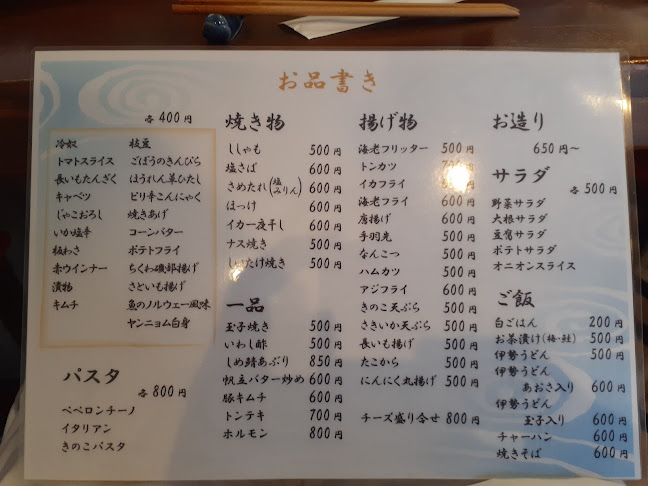 お品書き
各 400円
冷奴 枝豆
トマトスライス ごぼうのきんぴら
長いもたんざく ほうれん草ひたし
キャベツ ピリ辛こんにゃく
じゃこおろし 焼きあげ
いか塩辛 コーンバター
板わさ ポテトフライ
赤ウインナー ちくわ磯部揚げ
漬物 さといも揚げ
キムチ 魚のノルウェー風味
ヤンニョム白身
パスタ
各 800円
ペペロンチーノ
イタリアン
きのこパスタ
焼き物
ししゃも 500円
塩さば 600円
さめたれ(塩・みりん) 600円
ほっけ 600円
イカ一夜干し 600円
ナス焼き 500円
しいたけ焼き 500円
一品
玉子焼き 500円
いわし酢 500円
しめ鯖あぶり 850円
帆立バター炒め 600円
豚キムチ 600円
トンテキ 700円
ホルモン 800円
揚げ物
海老フリッター 500円
トンカツ
イカフライ
海老フライ
唐揚げ
手羽先 500円
なんこつ 500円
ハムカツ 500円
アジフライ 600円
きのこ天ぷら 500円
さきいか天ぷら 500円
長いも揚げ 500円
たこから 500円
にんにく丸揚げ 500円
チーズ盛り合せ 800円
お造り
650円〜
サラダ
各 500円
野菜サラダ
大根サラダ
豆腐サラダ
ポテトサラダ
オニオンスライス
ご飯
白ごはん 200円
お茶漬け(梅・鮭) 500円
伊勢うどん 500円
伊勢うどん
あおさ入り 600円
伊勢うどん
玉子入り 600円
チャーハン 600円
焼きそば 600円